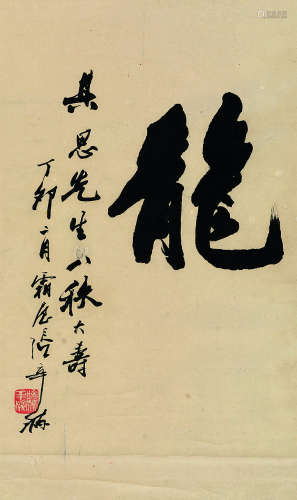 龍
其思先生八秩大壽
丁卯二月霜崖張辛